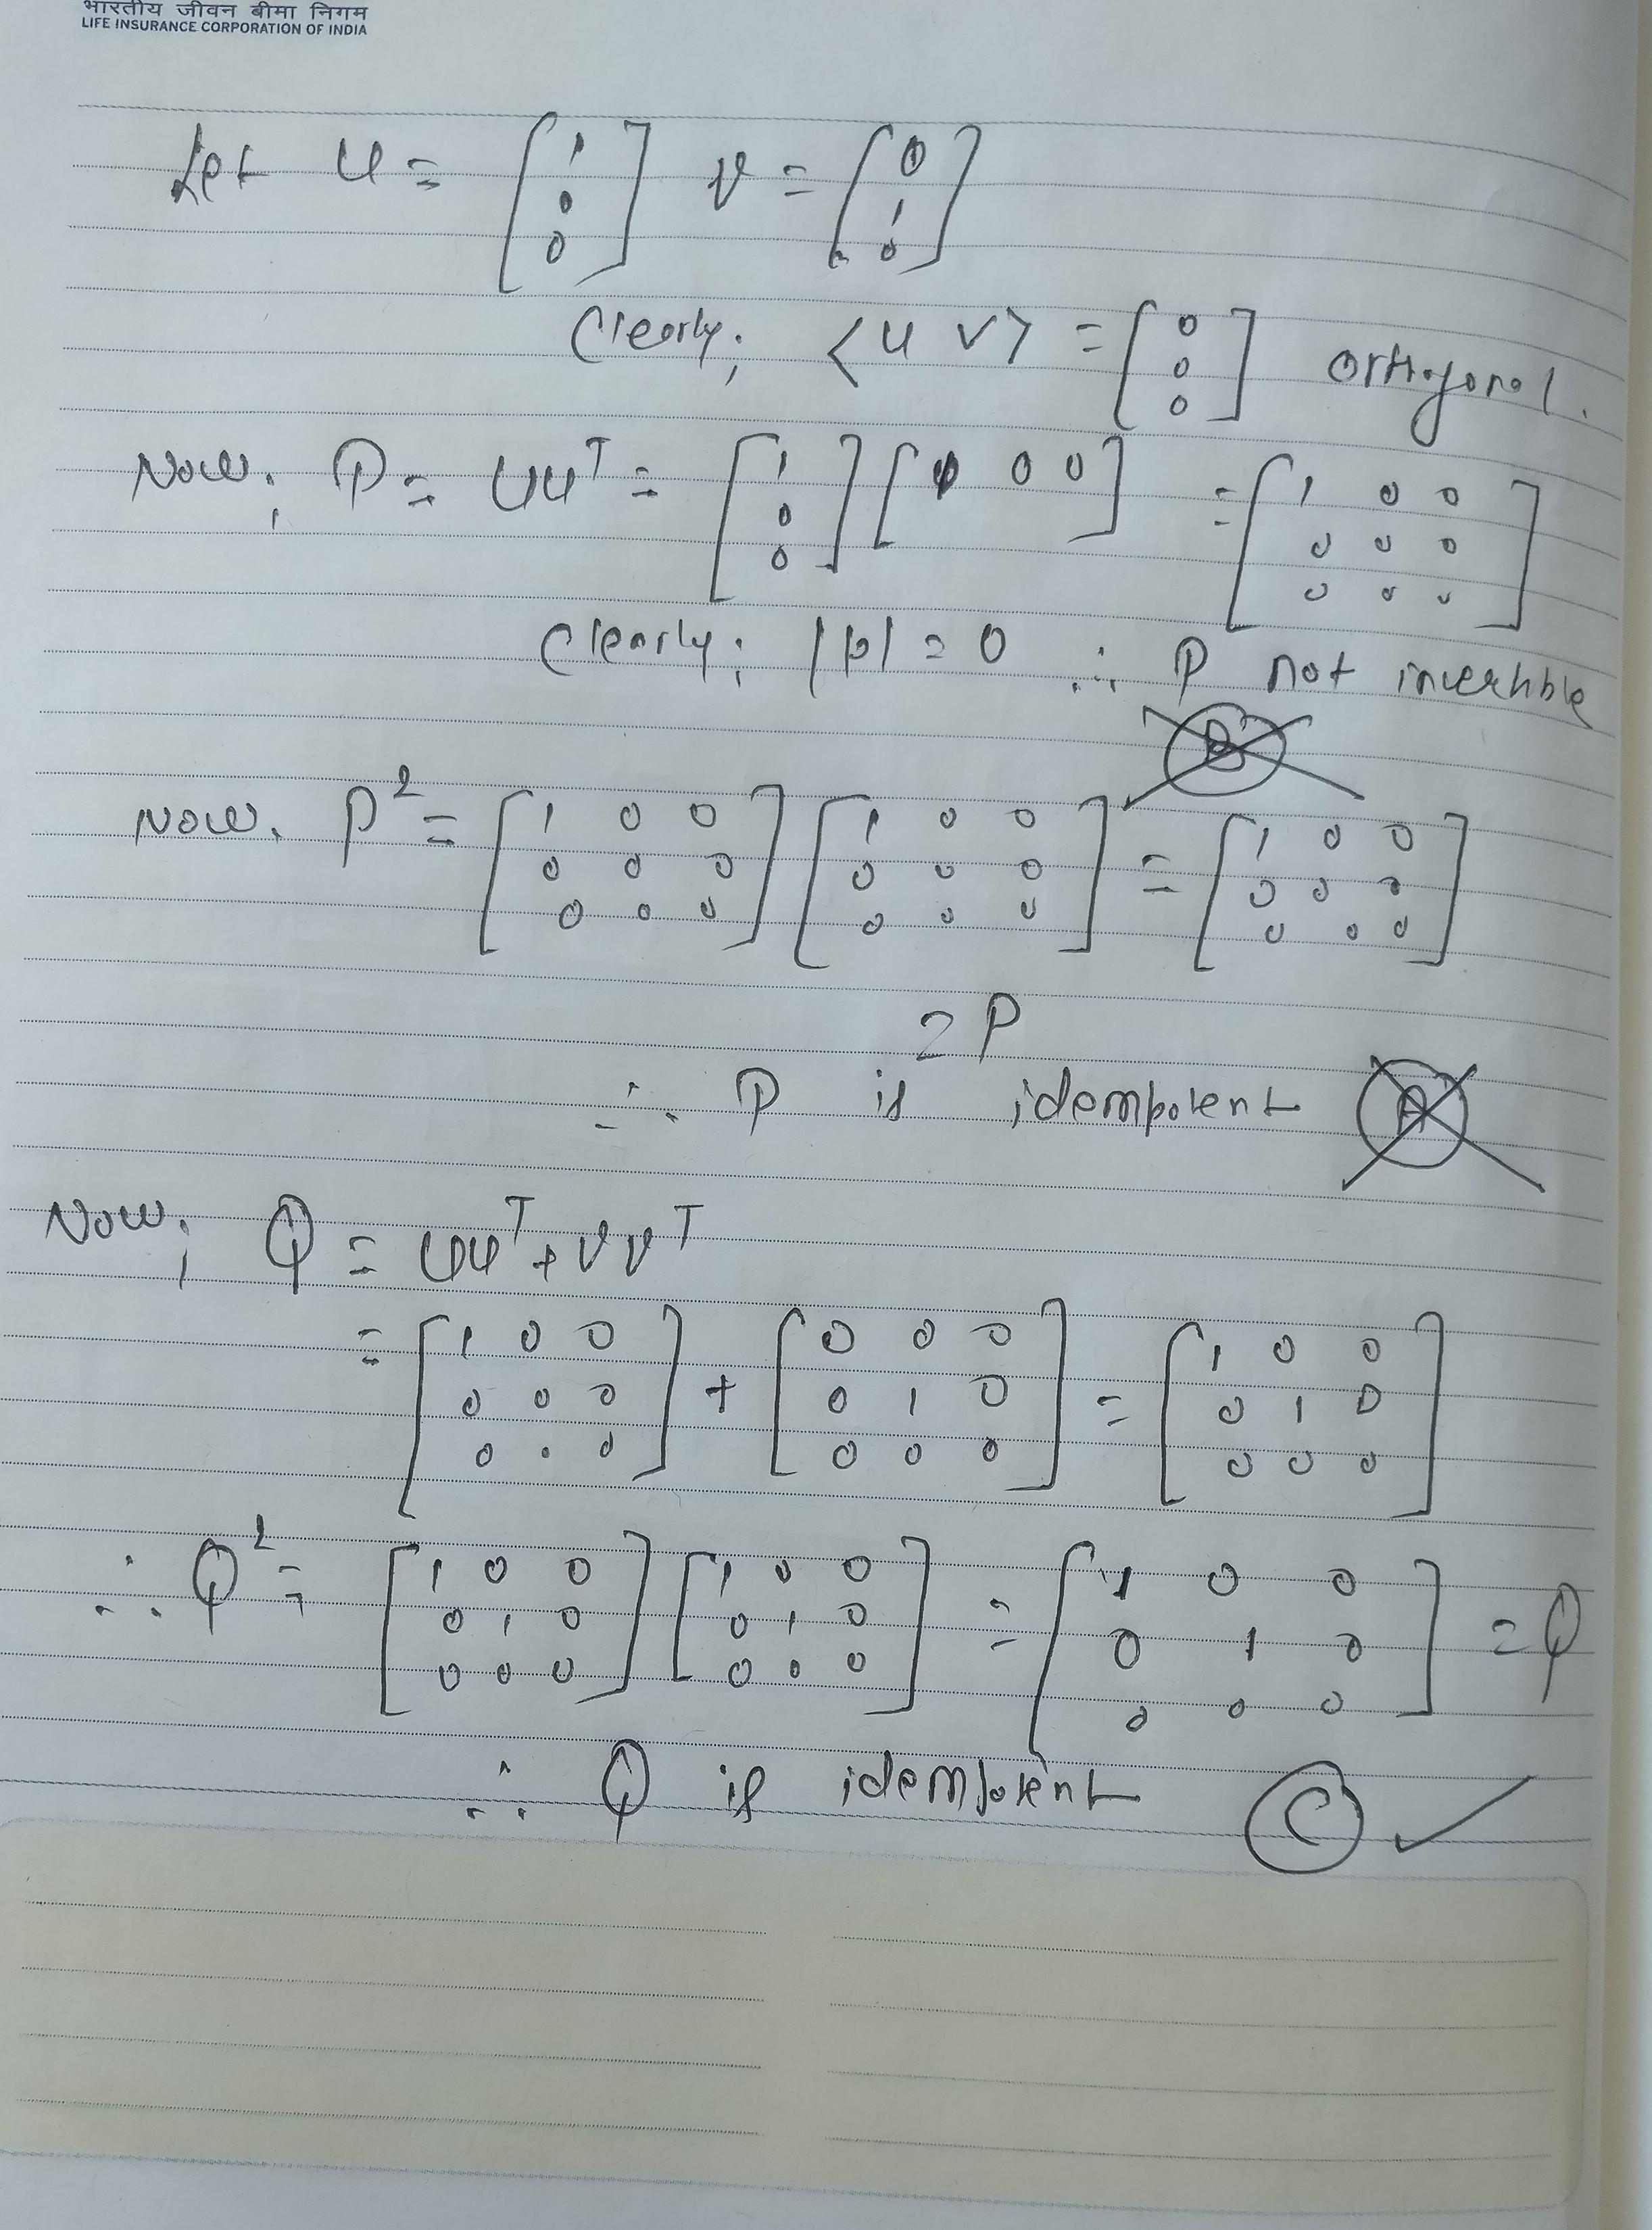 भारतीय जीवन बीमा निगम
LIFE INSURANCE CORPORATION OF INDIA
Let u = [1 0 0] v = [0 1 0]
Clearly; <u v> = [0 0 0] orthogonal.
Now; P = uu^T = [1 0 0] [1 0 0] = [1 0 0 0 0 0 0 0 0]
Clearly; |P| = 0 ∴ P not invertible
B
Now. P^2 = [1 0 0 0 0 0 0 0 0] [1 0 0 0 0 0 0 0 0] = [1 0 0 0 0 0 0 0 0]
= P
∴ P is idempotent A
Now; Q = uu^T + vv^T
= [1 0 0 0 0 0 0 0 0] + [0 0 0 0 1 0 0 0 0] = [1 0 0 0 1 0 0 0 0]
∴ Q^2 = [1 0 0 0 1 0 0 0 0] [1 0 0 0 1 0 0 0 0] = [1 0 0 0 1 0 0 0 0] = Q
∴ Q is idempotent C ✓